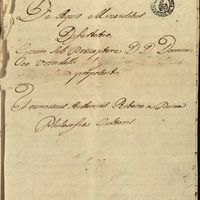 De Aquis Mineralibus
Dissertatio,
Quam Sub Praeceptore D. D. Domini
Co Vandelli
proposuit
Franciscus Antonius Ribeiro a Paiva
Philosofiae Cultoris